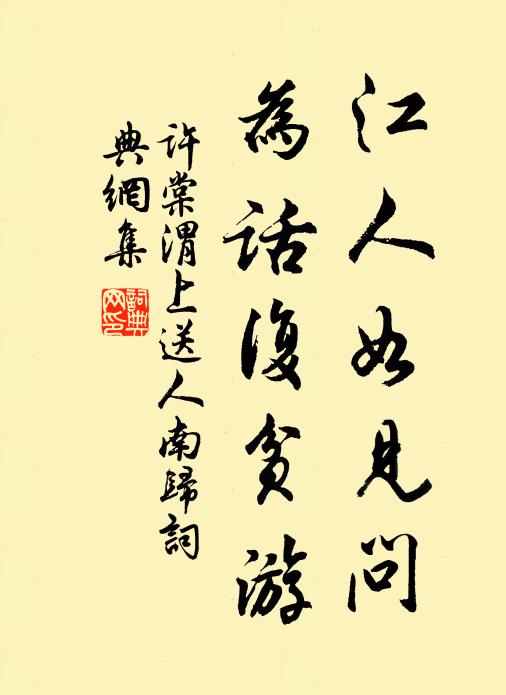 江人如見問
為話復貧游
許棠渭上送人南歸詞
典網集
詞典
网印